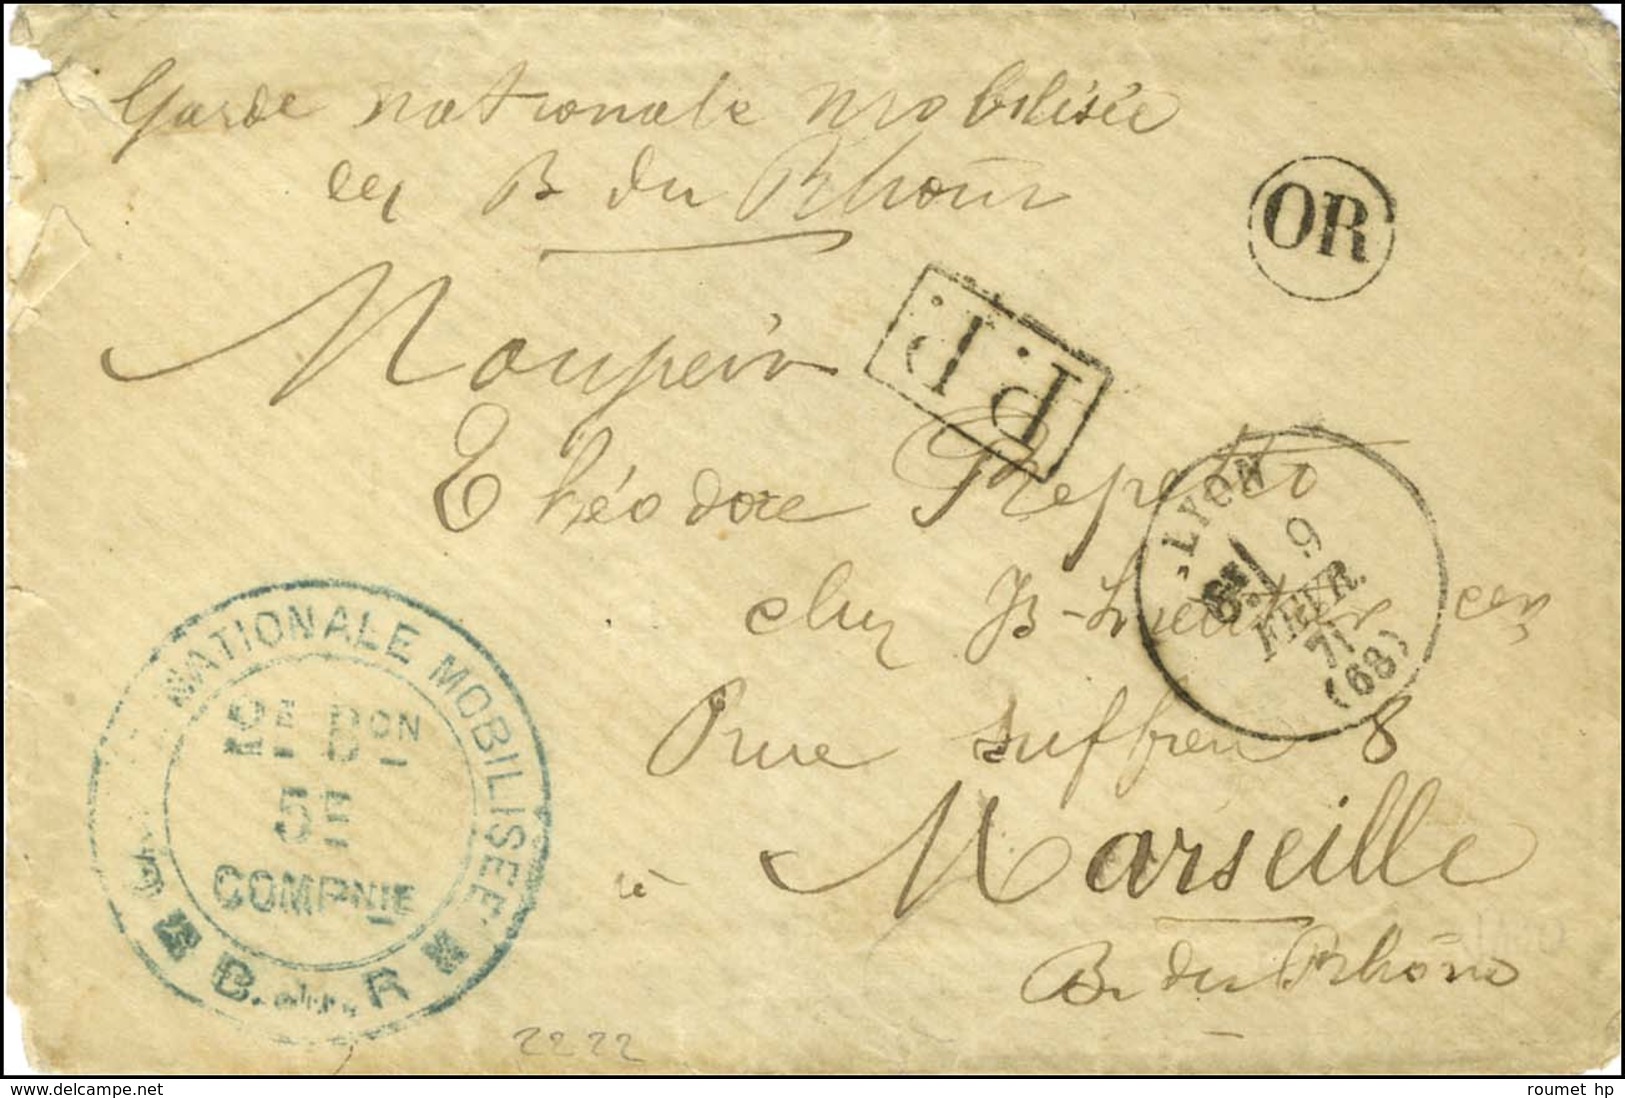 Garde nationale mobilisée
des B du Rhône
OR
P.P.
Monsieur
Théodore Repetto
chez
rue suffren 8
à Marseille
B. du Rhône
LYON
6E 9
FEVR.
71
(68)
NATIONALE MOBILISEE
2E BON
5E
COMPNIE
B. du R
2222
www.delcampe.net
roumet hp